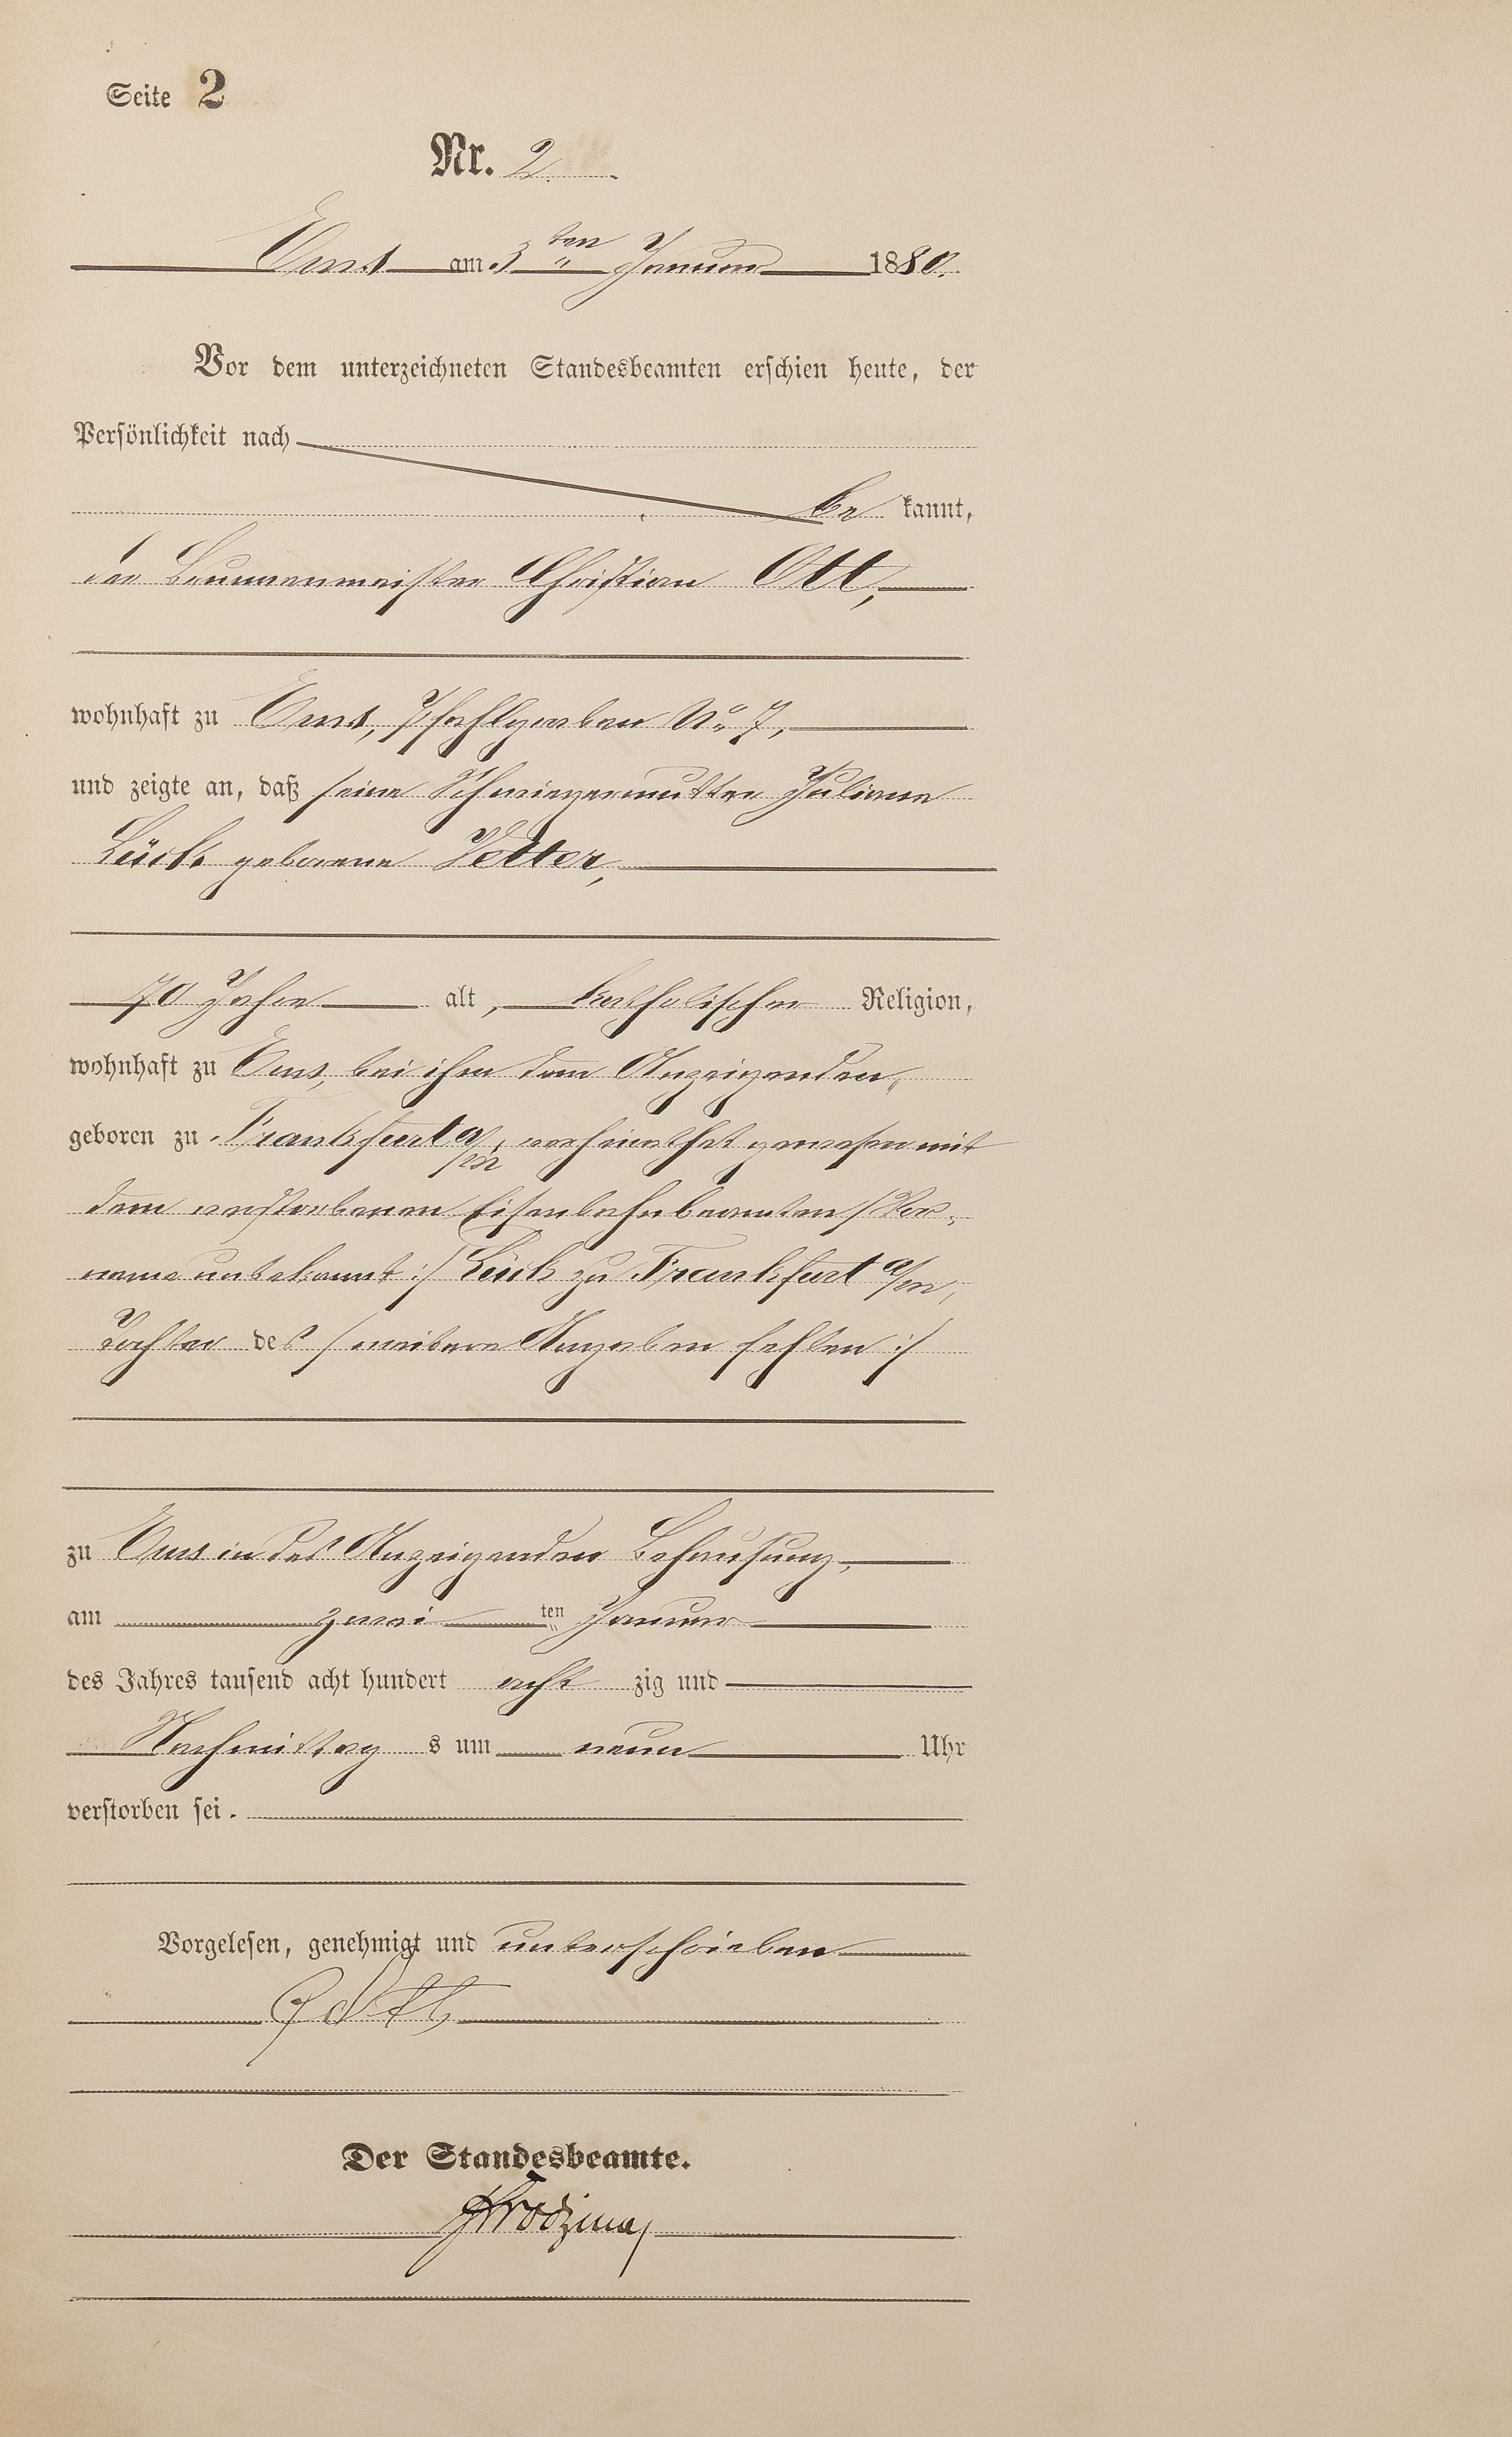 Seite 2
Nr. 2.
Ems am 3ten Januar 1880.
Vor dem unterzeichneten Standesbeamten erschien heute, der
Persönlichkeit nach
be kannt,
der Brunnenmeister Christian Ott,
wohnhaft zu Ems, Pfahlgraben No 7,
und zeigte an, daß seine Schwiegermutter Juliane
Lück geborene Vetter,
70 Jahre alt, katholischer Religion,
wohnhaft zu Ems, bei ihm dem Anzeigenden,
geboren zu Frankfurt a/m, verheirathet gewesen mit
dem verstorbenen Eisenbahnbeamten /: Vor-
name unbekannt :/ Lück zu Frankfurt a/m,
Tochter des /: weitere Angaben fehlen :/
zu Ems in des Anzeigenden Behausung,
am zwei ten Januar
des Jahres tausend acht hundert acht zig und
Nachmittag s um neun Uhr
verstorben sei.
Vorgelesen, genehmigt und unterschrieben
Ott
Der Standesbeamte.